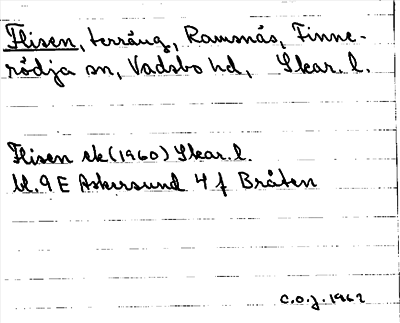 Flisen, terräng, Ramsnäs, Finne-
rödja sn, Vadsbo hd, Skar. l.
Flisen ek (1960) Skar. l.
bl. 9 E Askersund 4 f Bråten
C.O.J. 1962